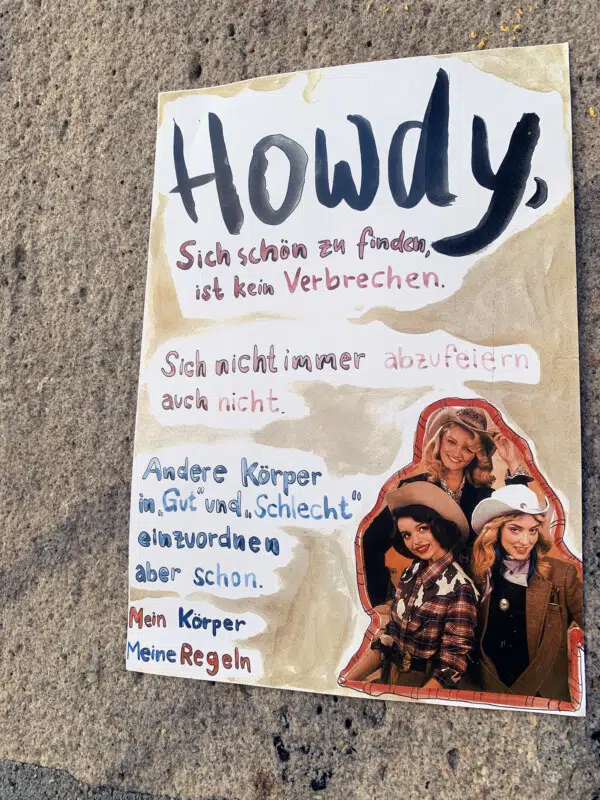 Howdy,
Sich schön zu finden,
ist kein Verbrechen.
Sich nicht immer abzufeiern
auch nicht.
Andere Körper
in „Gut“ und „Schlecht“
einzuordnen
aber schon.
Mein Körper
Meine Regeln